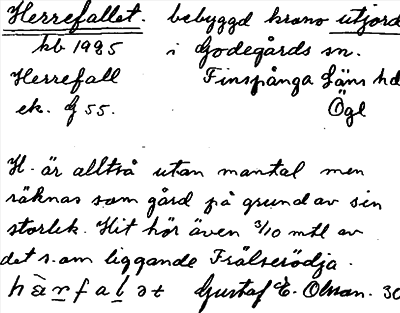 Herrefallet. bebyggd krono utjord
kb 1925 i Godegårds sn.
Herrefall Finspånga Läns hd
ek. G 55. Ögl
H. är alltså utan mantal men
räknas som gård på grund av sin
storlek. Hit hör även 3/10 mtl av
det s.om liggande Frälserödja.
hὰrfalət Gustaf E. Olsson. 30